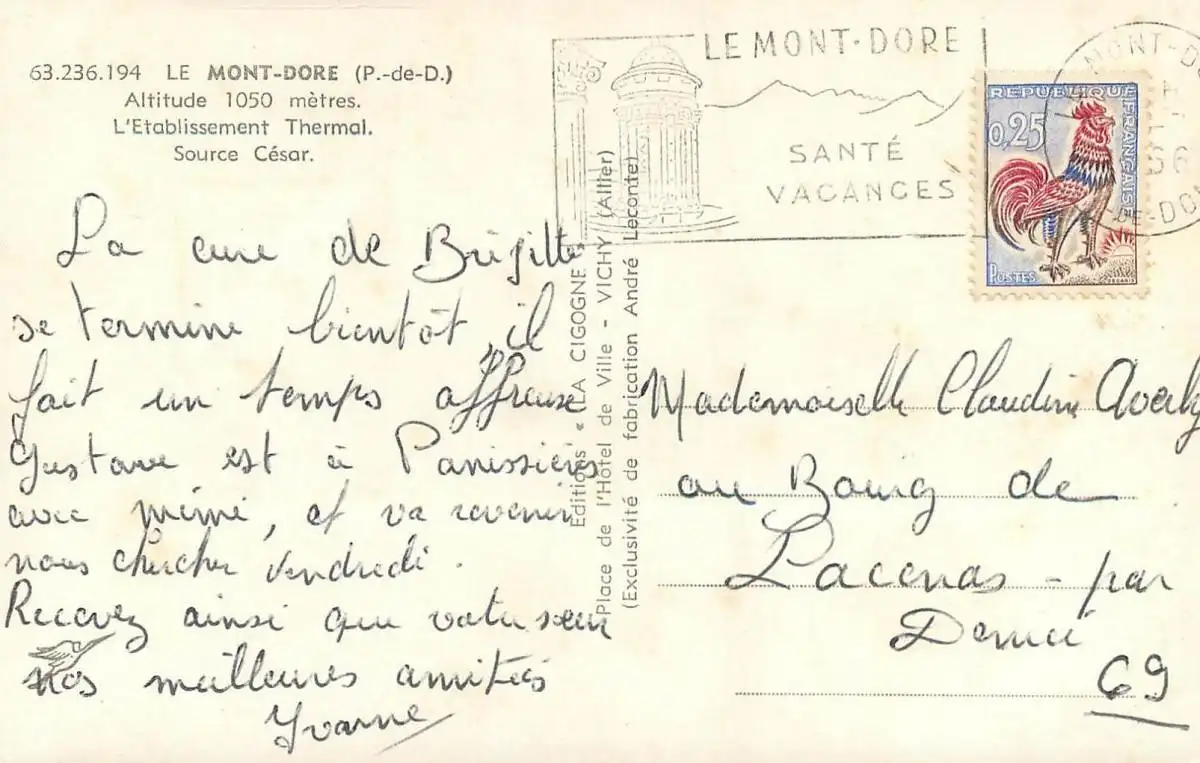 63.236.194 LE MONT-DORE (P.-de-D.)
Altitude 1050 mètres.
L'Etablissement Thermal.
Source César.
La cure de Brigitte
se termine bientôt, il
fait un temps affreux
Gustave est à Panissières
avec mémé, et va revenir
nous chercher vendredi.
Recevez ainsi que votre sœur
nos meilleures amitiés
Yvonne
Editions « LA CIGOGNE »
Place de l'Hôtel de Ville - VICHY (Allier)
(Exclusivité de fabrication André Leconte)
LE MONT-DORE
SANTÉ
VACANCES
MONT-DO
E-DO
REPUBLIQUE FRANÇAISE
0,25
POSTES
DECARIS
Mademoiselle Claudine
au Bourg de
Lacenas - par
Denicé
69